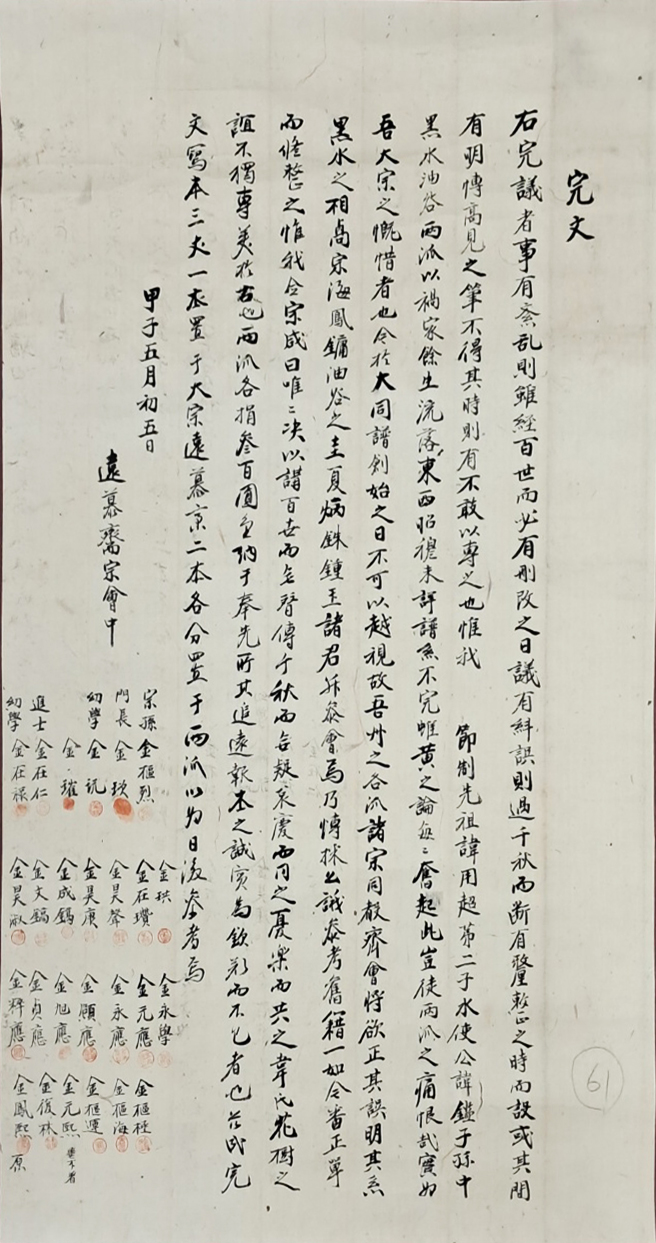 完文
右完議者事有紊乱則雖經百世而必有刪改之日議有紏誤則過千秋而斷有釐整正之時而設或其間
有明愽高見之筆不得其時則有不敢以專之也惟我 節制先祖諱用超第二子水使公諱鎰子孫中
黑水油谷兩派以禍家餘生流落東西昭穆未詳譜系不完雌黃之論每〻奮起此豈徒兩派之痛恨哉實如
吾大宗之慨惜者也今於大同譜刱始之日不可以越視故吾州之各派諸宗同聲齊會將欲正其誤明其系
黑水之相卨宗海鳳鏞油谷之圭夏炳銖鍾玉諸君幷叅會焉乃愽採公議叅考舊籍一如今番正單
而修整之惟我僉宗咸曰唯〻决以講百世而無替傳千秋而無疑哀慶而同之憂樂而共之韋氏花樹之
誼不獨專美於右也兩派各捐叄百圓金納于奉先所其追遠報本之誠實爲欽歎而不已者也玆成完
文寫本三丈一本置于大宗遠慕齋二本各分置于兩派以为日後叅考焉
甲子五月初五日
遠慕齋宗會中
宗孫 金極烈
門長 金
幼學 金
金㻶
進士 金在仁
幼學 金在祿
金珙
金在瓚
金昊聲
金昊庚
金成鎬
金文鎬
金昊
金永學
金元應
金永應
金顯應
金旭應
金貞應
金輝應
金極
金極海
金極運
金元熙
金復林
金鳳熙
原
61